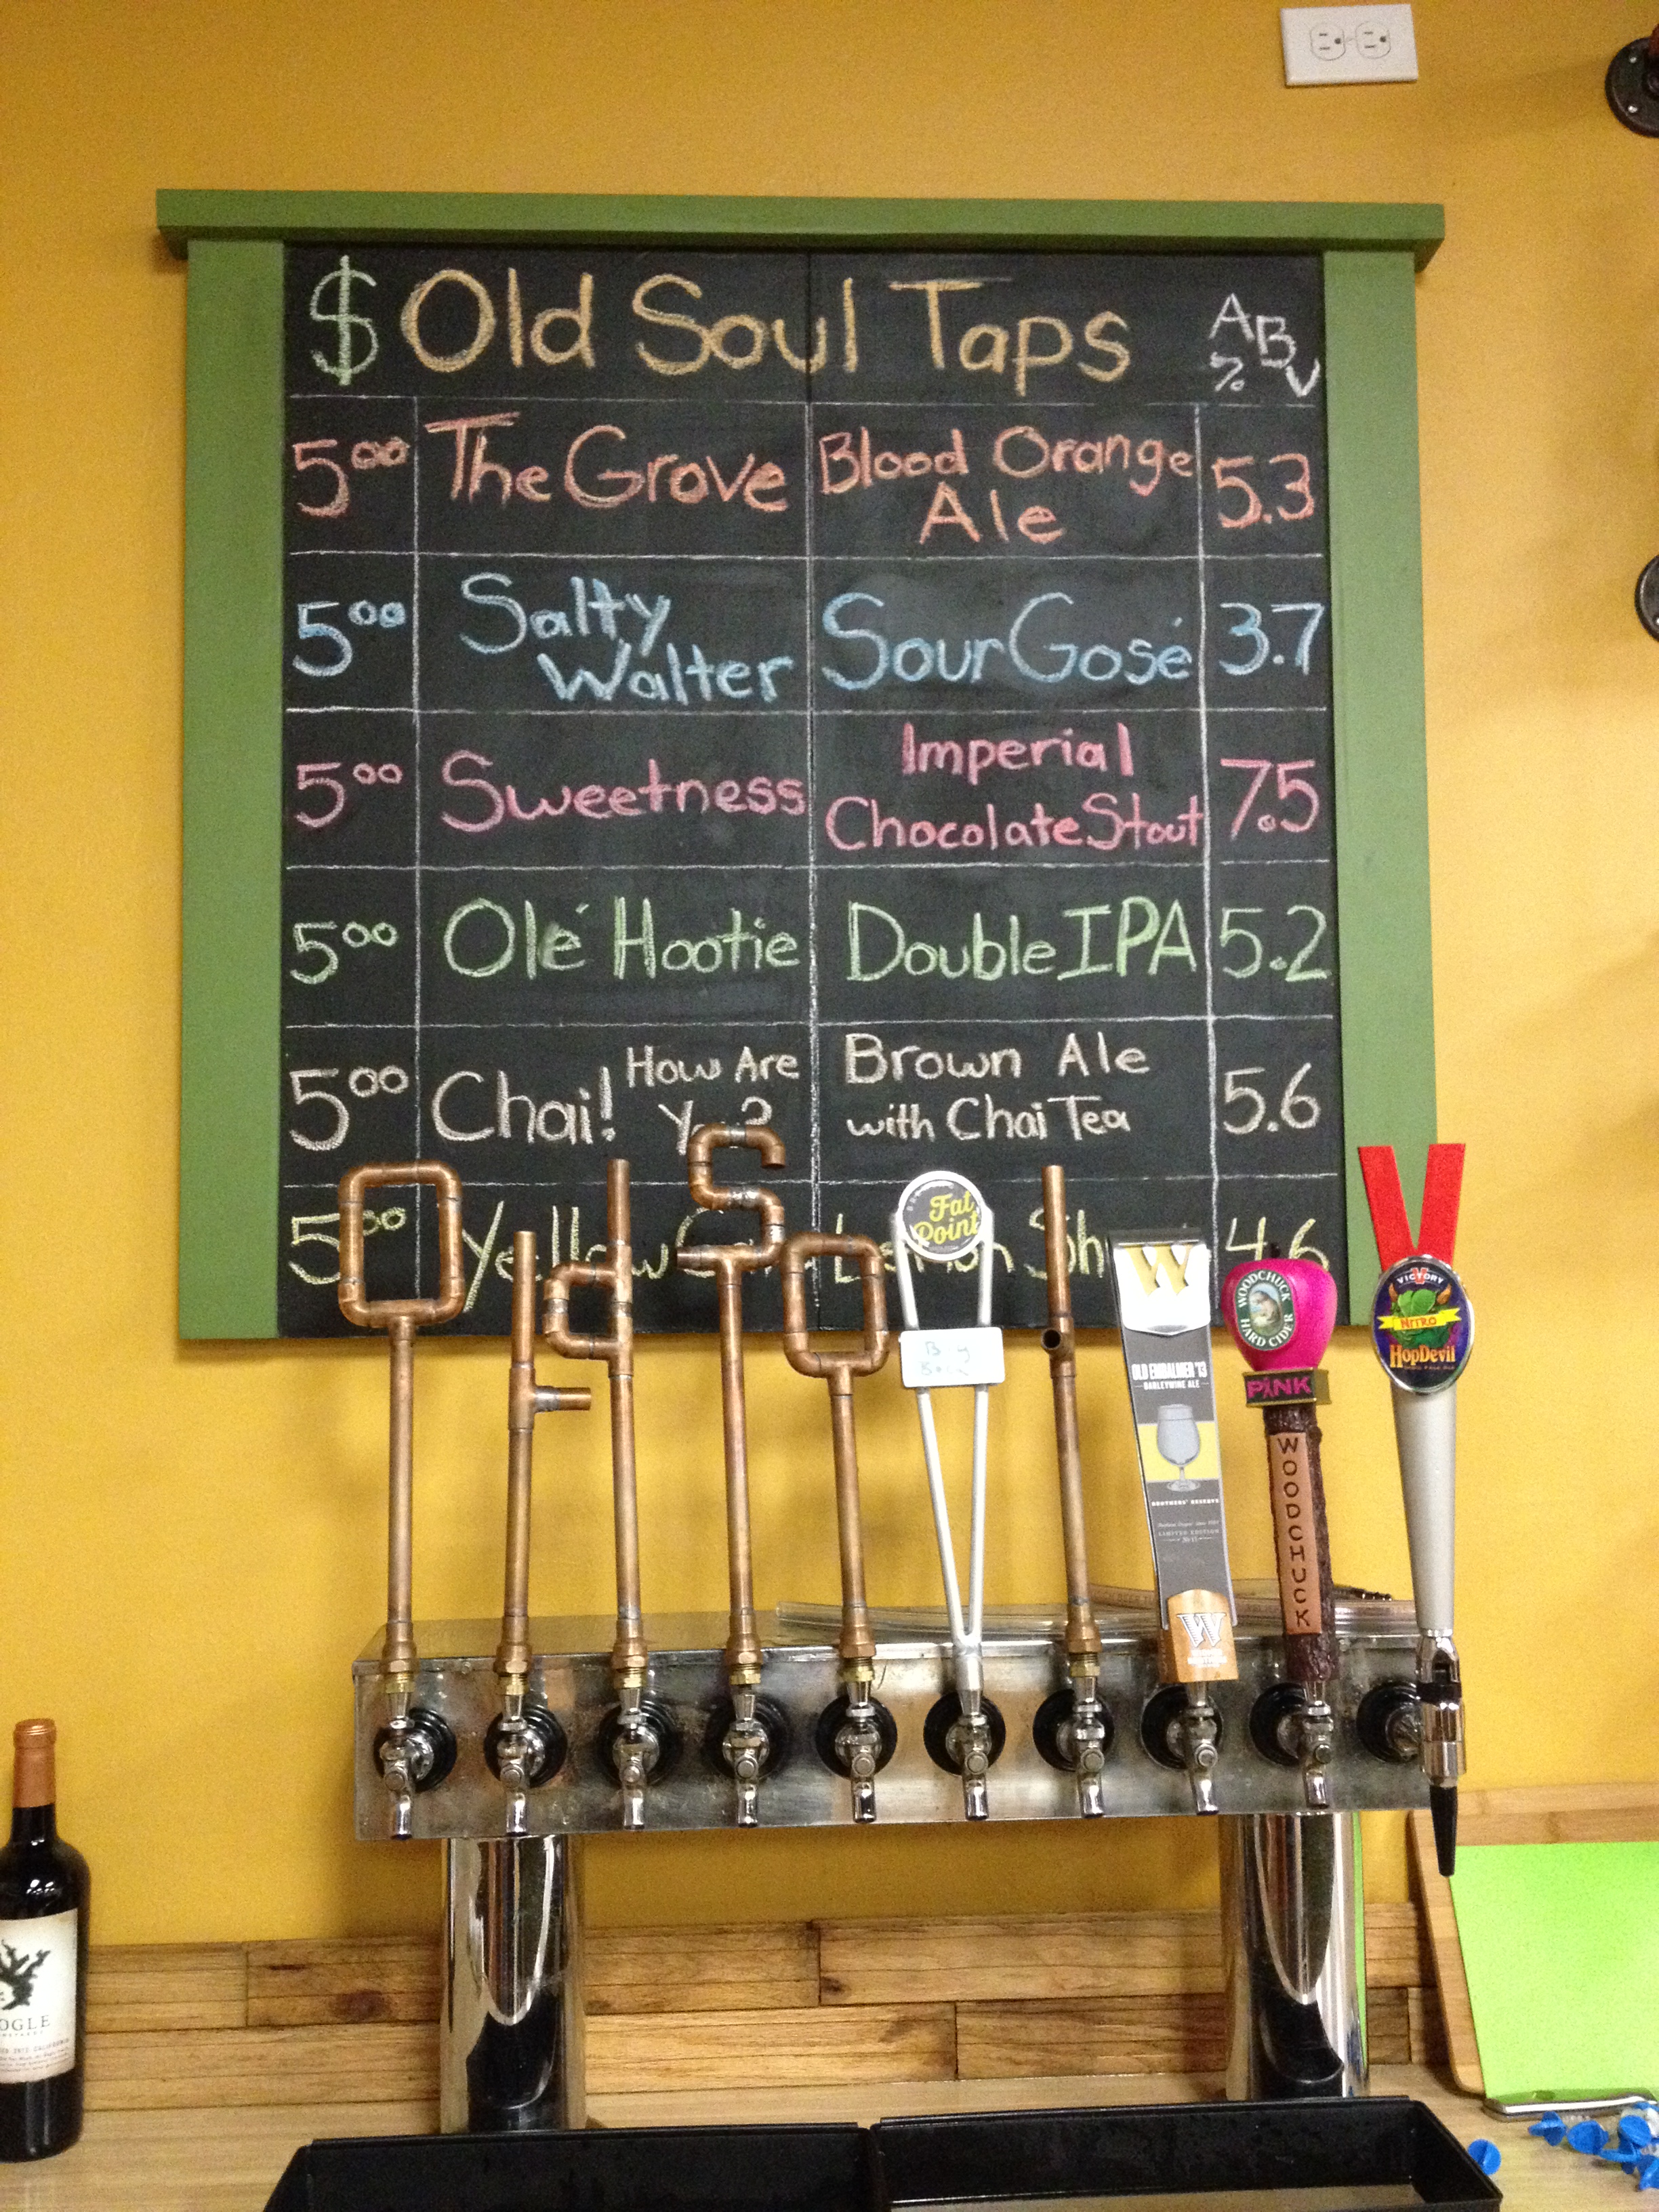 $ Old Soul Taps A B V %
5.00 The Grove Blood Orange Ale 5.3
5.00 Salty Walter Sour Gosé 3.7
5.00 Sweetness Imperial Chocolate Stout 7.5
5.00 Olé Hootie Double IPA 5.2
5.00 Chai! How Are Brown Ale with Chai Tea 5.6
5.00 4.6
Fat
Point
W
OLD EMBALMER '13
BARLEYWINE ALE
BROTHERS' RESERVE
LIMITED EDITION
W
WOODCHUCK
HARD CIDER
PINK
WOODCHUCK
V
VICTORY
NITRO
HopDevil
OGLE